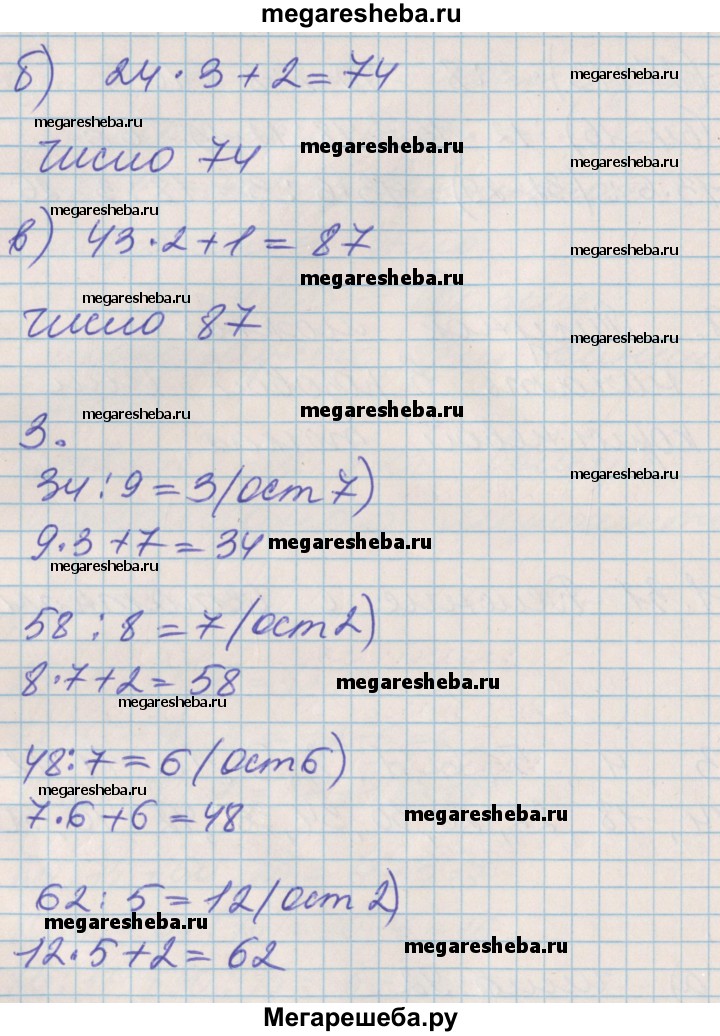 megaresheba.ru
б) 24 · 3 + 2 = 74
megaresheba.ru
megaresheba.ru
число 74
megaresheba.ru
megaresheba.ru
megaresheba.ru
в) 43 · 2 + 1 = 87
megaresheba.ru
megaresheba.ru
megaresheba.ru
число 87
megaresheba.ru
megaresheba.ru
megaresheba.ru
3.
34 : 9 = 3 (ост 7)
megaresheba.ru
9 · 3 + 7 = 34
megaresheba.ru
megaresheba.ru
58 : 8 = 7 (ост 2)
8 · 7 + 2 = 58
megaresheba.ru
megaresheba.ru
48 : 7 = 6 (ост 6)
megaresheba.ru
7 · 6 + 6 = 48
megaresheba.ru
62 : 5 = 12 (ост 2)
megaresheba.ru
12 · 5 + 2 = 62
megaresheba.ru
Мегарешеба.ру